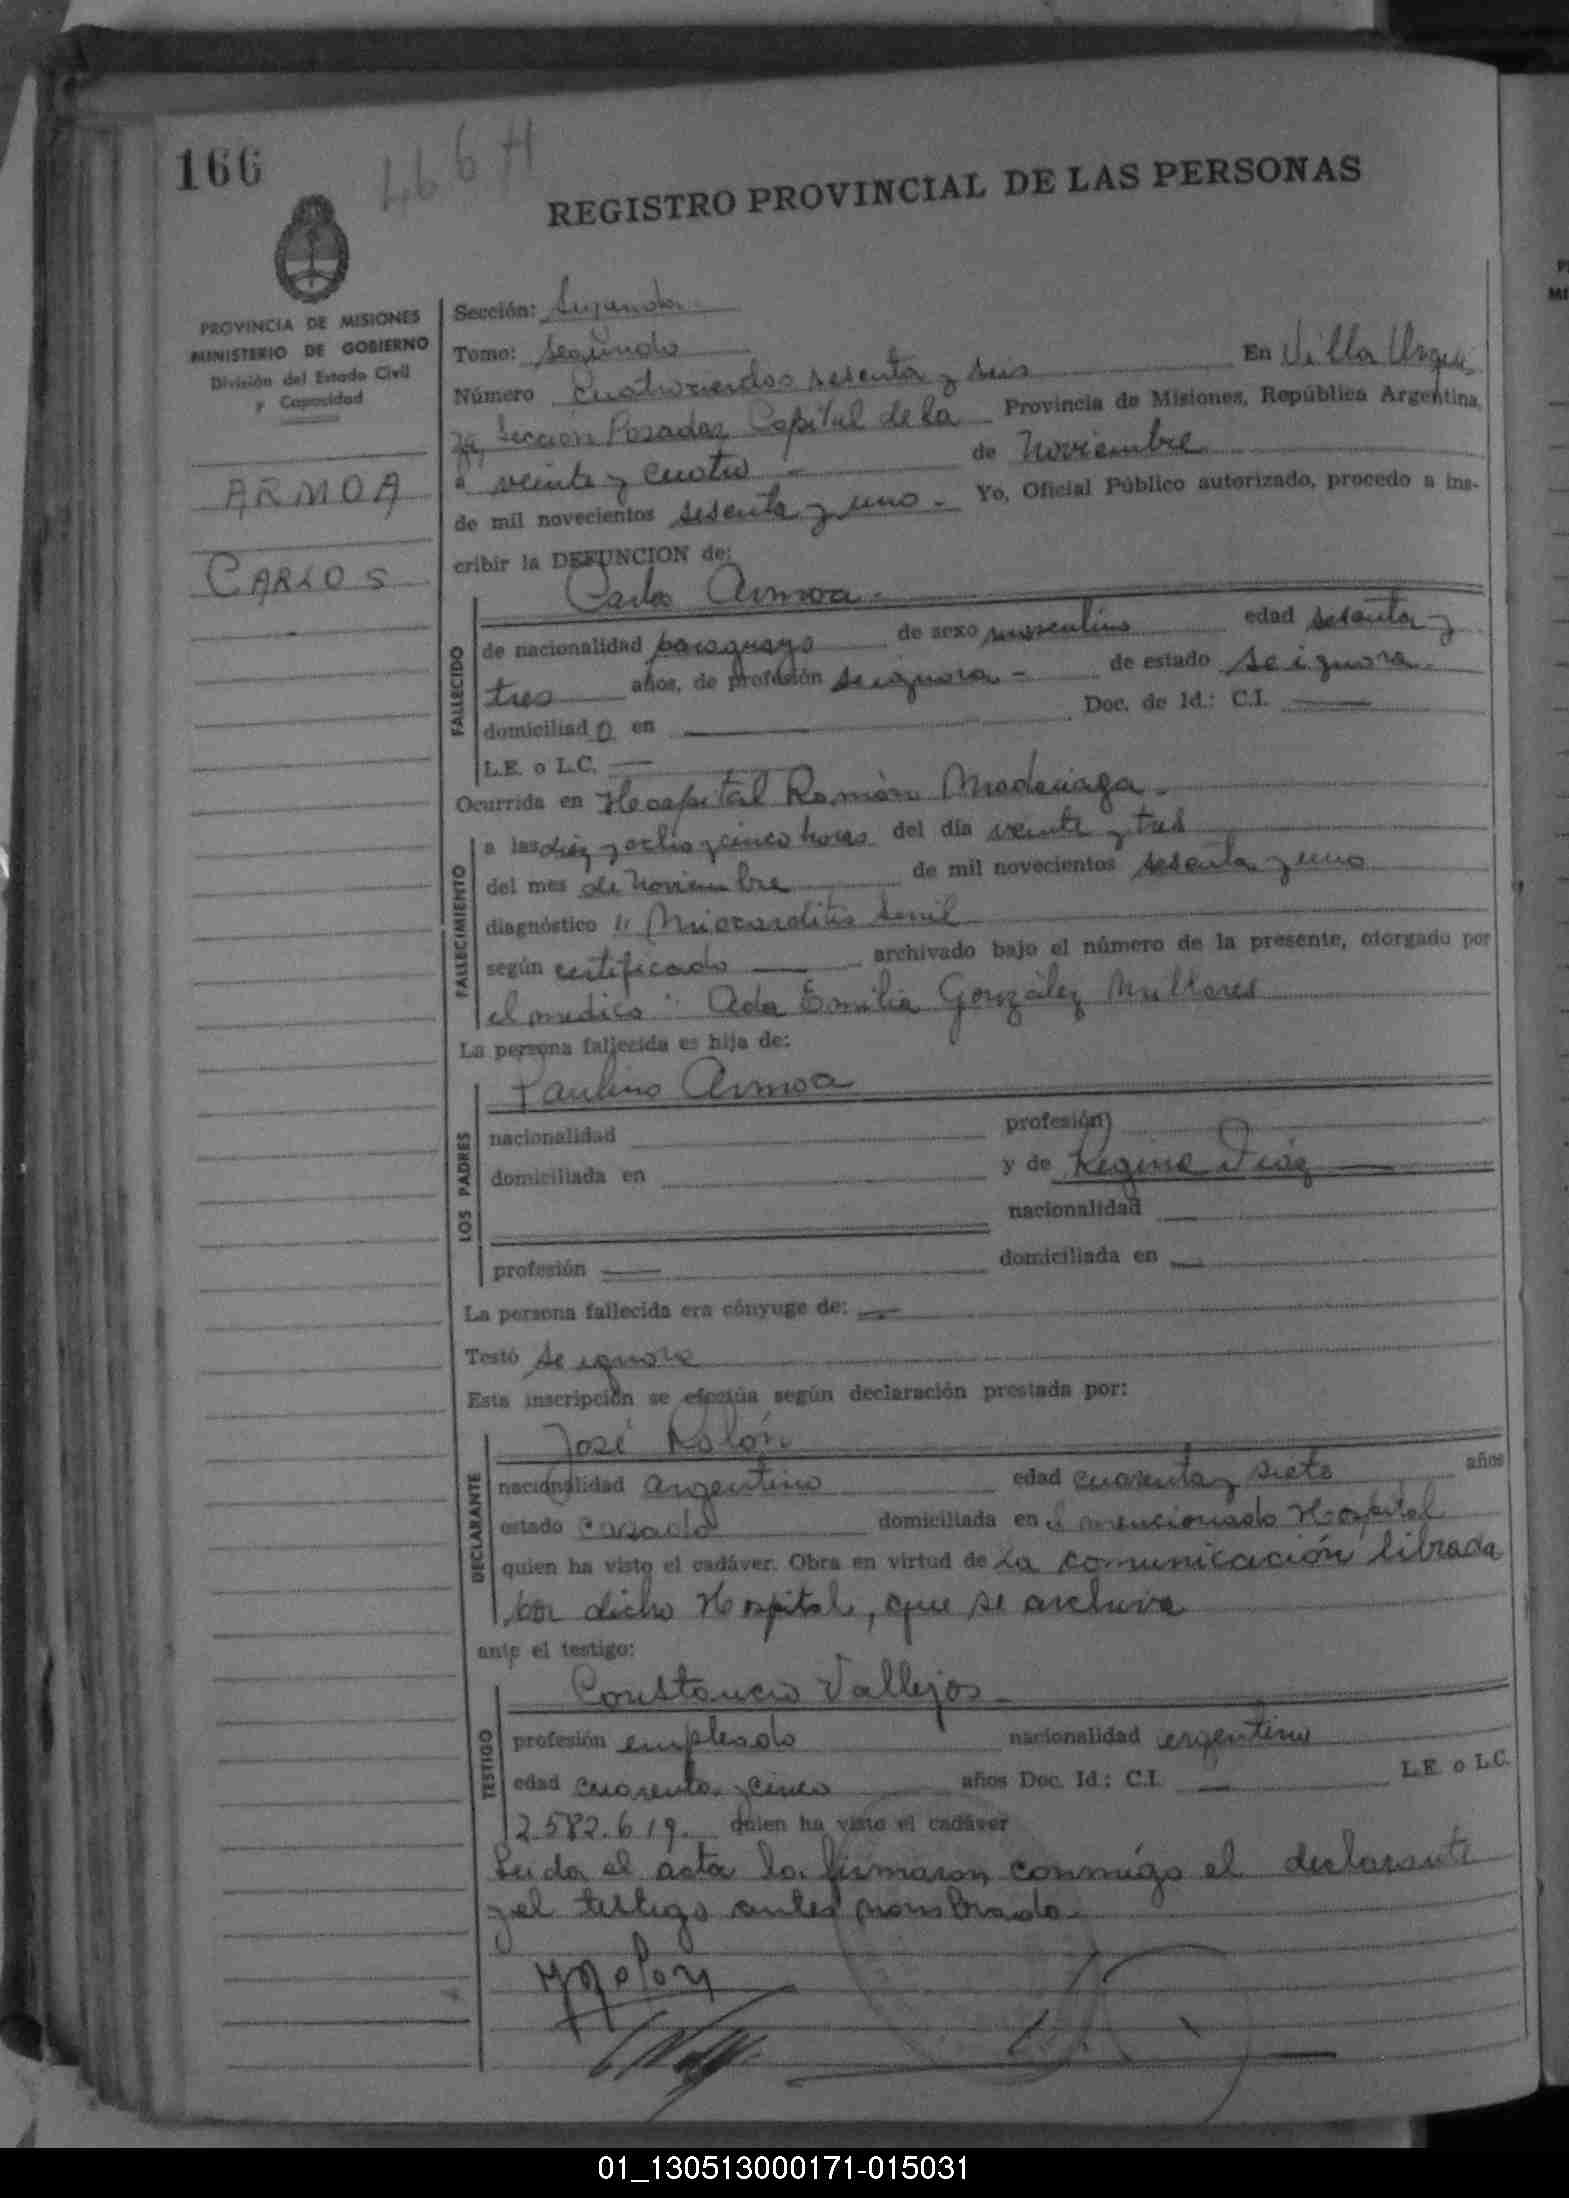 166
466 H
REGISTRO PROVINCIAL DE LAS PERSONAS
PROVINCIA DE MISIONES
MINISTERIO DE GOBIERNO
División del Estado Civil
y Capacidad
ARMOA
CARLOS
Sección: Segunda
Tomo: Segundo
Número Cuatrocientos sesenta y seis En Villa Urquiza
Sección Posadas Capital de la Provincia de Misiones, República Argentina,
a veinte y cuatro de Noviembre
de mil novecientos sesenta y uno Yo, Oficial Público autorizado, procedo a ins-
cribir la DEFUNCION de:
Carlos Armoa
FALLECIDO
de nacionalidad paraguayo de sexo masculino edad sesenta y
tres años, de profesión se ignora de estado se ignora
domiciliado en Doc. de Id.: C.I.
L.E. o L.C.
Ocurrida en Hospital Ramón Madariaga
FALLECIMIENTO
a las diez y ocho y cinco horas del día veinte y tres
del mes de Noviembre de mil novecientos sesenta y uno
diagnóstico " Miocarditis senil
según certificado archivado bajo el número de la presente, otorgado por
el medico: Ada Emilia González Millares
La persona fallecida es hija de:
LOS PADRES
Paulino Armoa
nacionalidad profesión
domiciliada en y de Regina Diáz
nacionalidad
profesión domiciliada en
La persona fallecida era cónyuge de:
Testó se ignora
Esta inscripción se efectúa según declaración prestada por:
DECLARANTE
José Rolón
nacionalidad argentino edad cuarenta y siete años
estado casado domiciliada en el mencionado Hospital
quien ha visto el cadáver. Obra en virtud de la comunicación librada
por dicho Hospital, que se archiva
ante el testigo:
TESTIGO
Constancio Vallejos
profesión empleado nacionalidad argentino
edad cuarenta y cinco años Doc. Id.: C.I. L.E. o L.C.
2.582.619. quien ha visto el cadáver
Leida el acta la firmaron conmigo el declarante
y el testigo antes nombrado
01_130513000171-015031